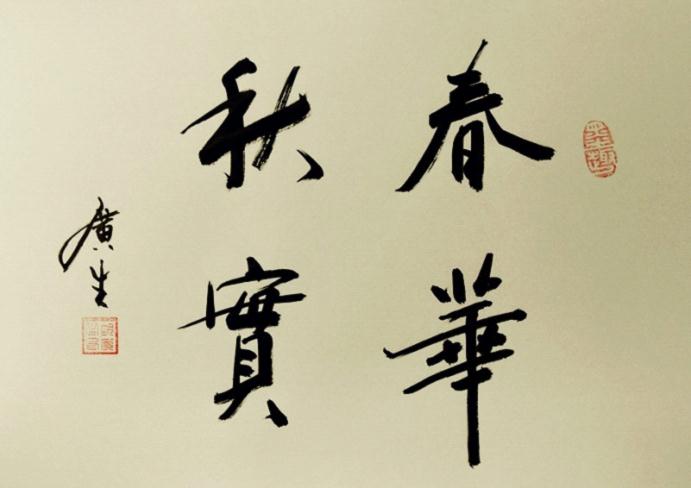 春華
秋實
廣生